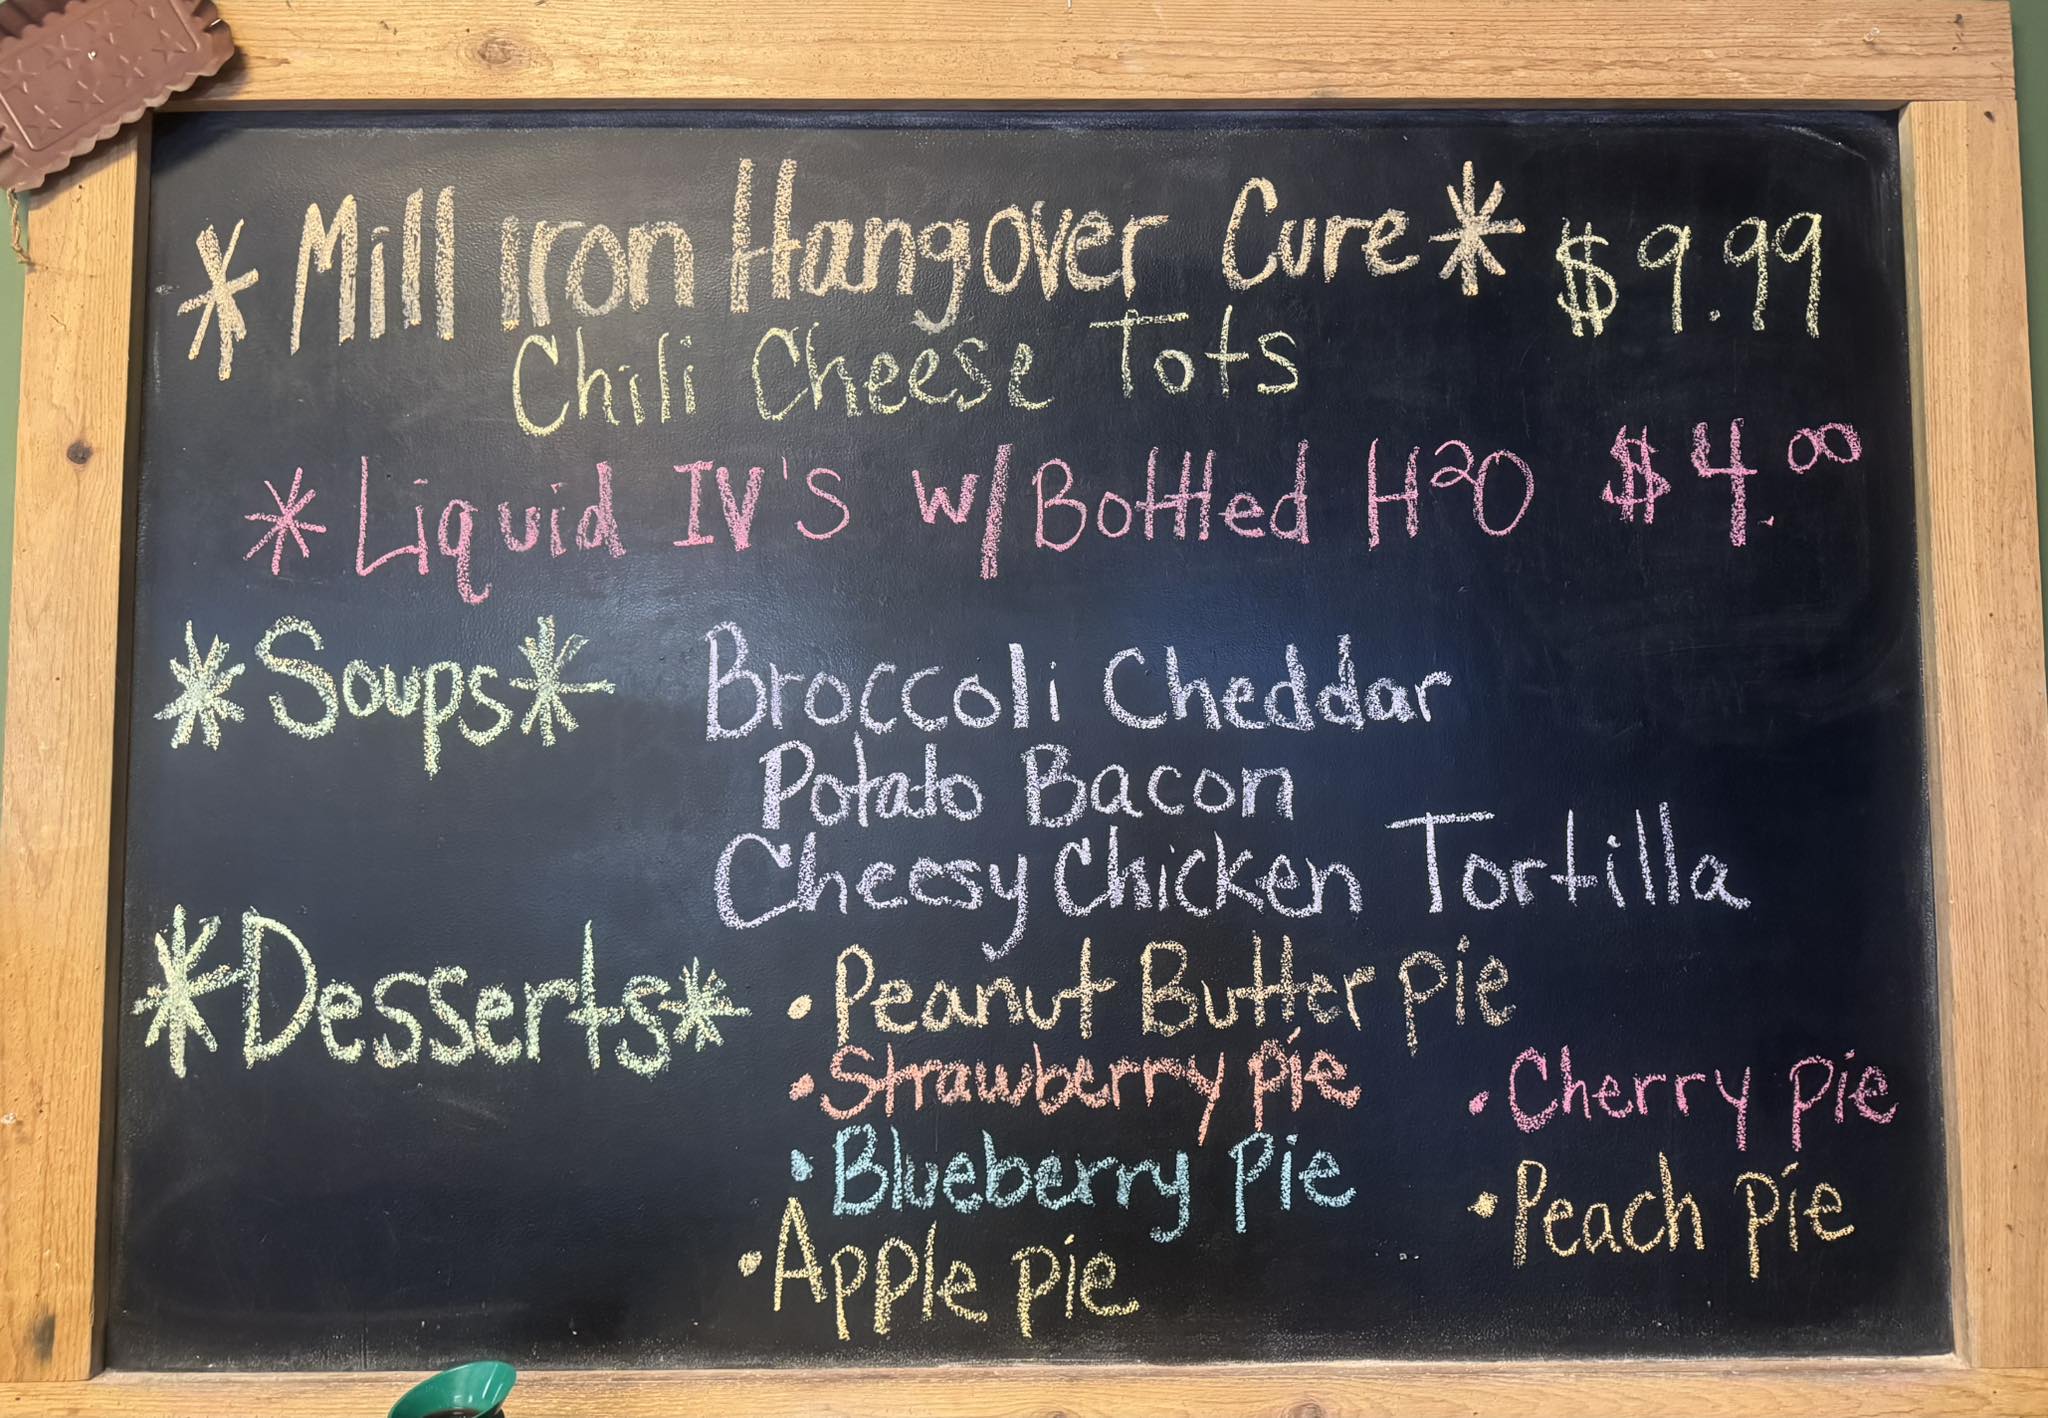 * Mill Iron Hangover Cure * $9.99
Chili Cheese Tots
* Liquid IV'S W/ Bottled H²O $4.⁰⁰
*Soups* Broccoli Cheddar
Potato Bacon
Cheesy Chicken Tortilla
*Desserts* • Peanut Butter pie
• Strawberry pie • Cherry pie
• Blueberry Pie • Peach pie
• Apple pie